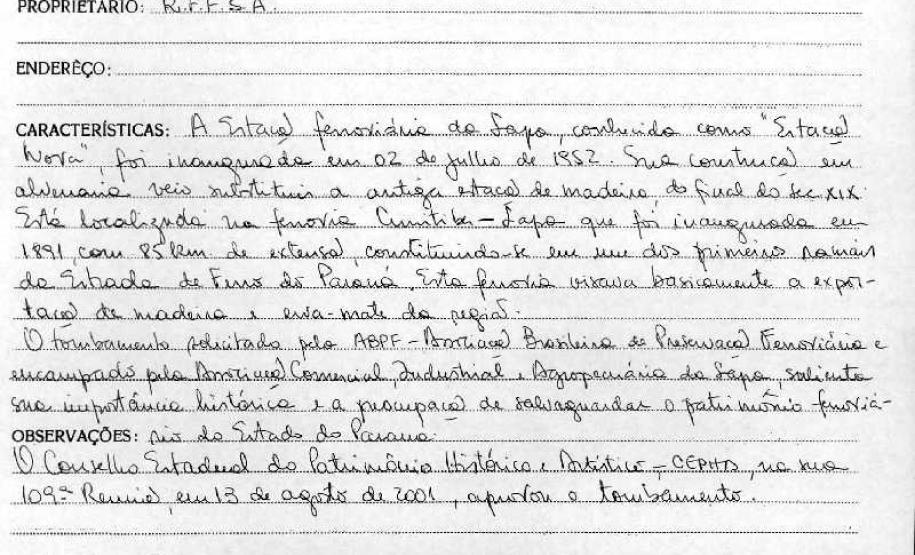 PROPRIETÁRIO: R.F.F.S.A.
ENDERÊÇO:
CARACTERÍSTICAS: A Estação ferroviária da Lapa, conhecida como "Estação
Nova", foi inaugurada em 02 de julho de 1952. Sua construção em
alvenaria veio substituir a antiga estação de madeira do final do séc XIX.
Está localizada na ferrovia Curitiba - Lapa que foi inaugurada em
1891, com 85 km de extensão, constituindo-se em um dos primeiros ramais
da Estrada de Ferro do Paraná. Esta ferrovia visava basicamente a expor-
tação de madeira e erva-mate da região.
O tombamento solicitado pela ABPF - Associação Brasileira de Preservação Ferroviária e
encampado pela Associação Comercial, Industrial e Agropecuária da Lapa, salienta
sua importância histórica e a preocupação de salvaguardar o patrimônio ferroviá-
OBSERVAÇÕES: rio do Estado do Paraná.
O Conselho Estadual do Patrimônio Histórico e Artístico - CEPHA, na sua
109ª Reunião, em 13 de agosto de 2001, aprovou o tombamento.